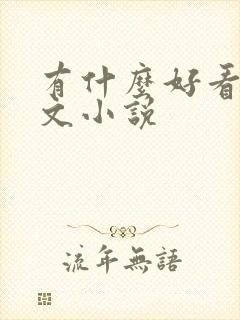 有什麼好看
文小說
流年無語